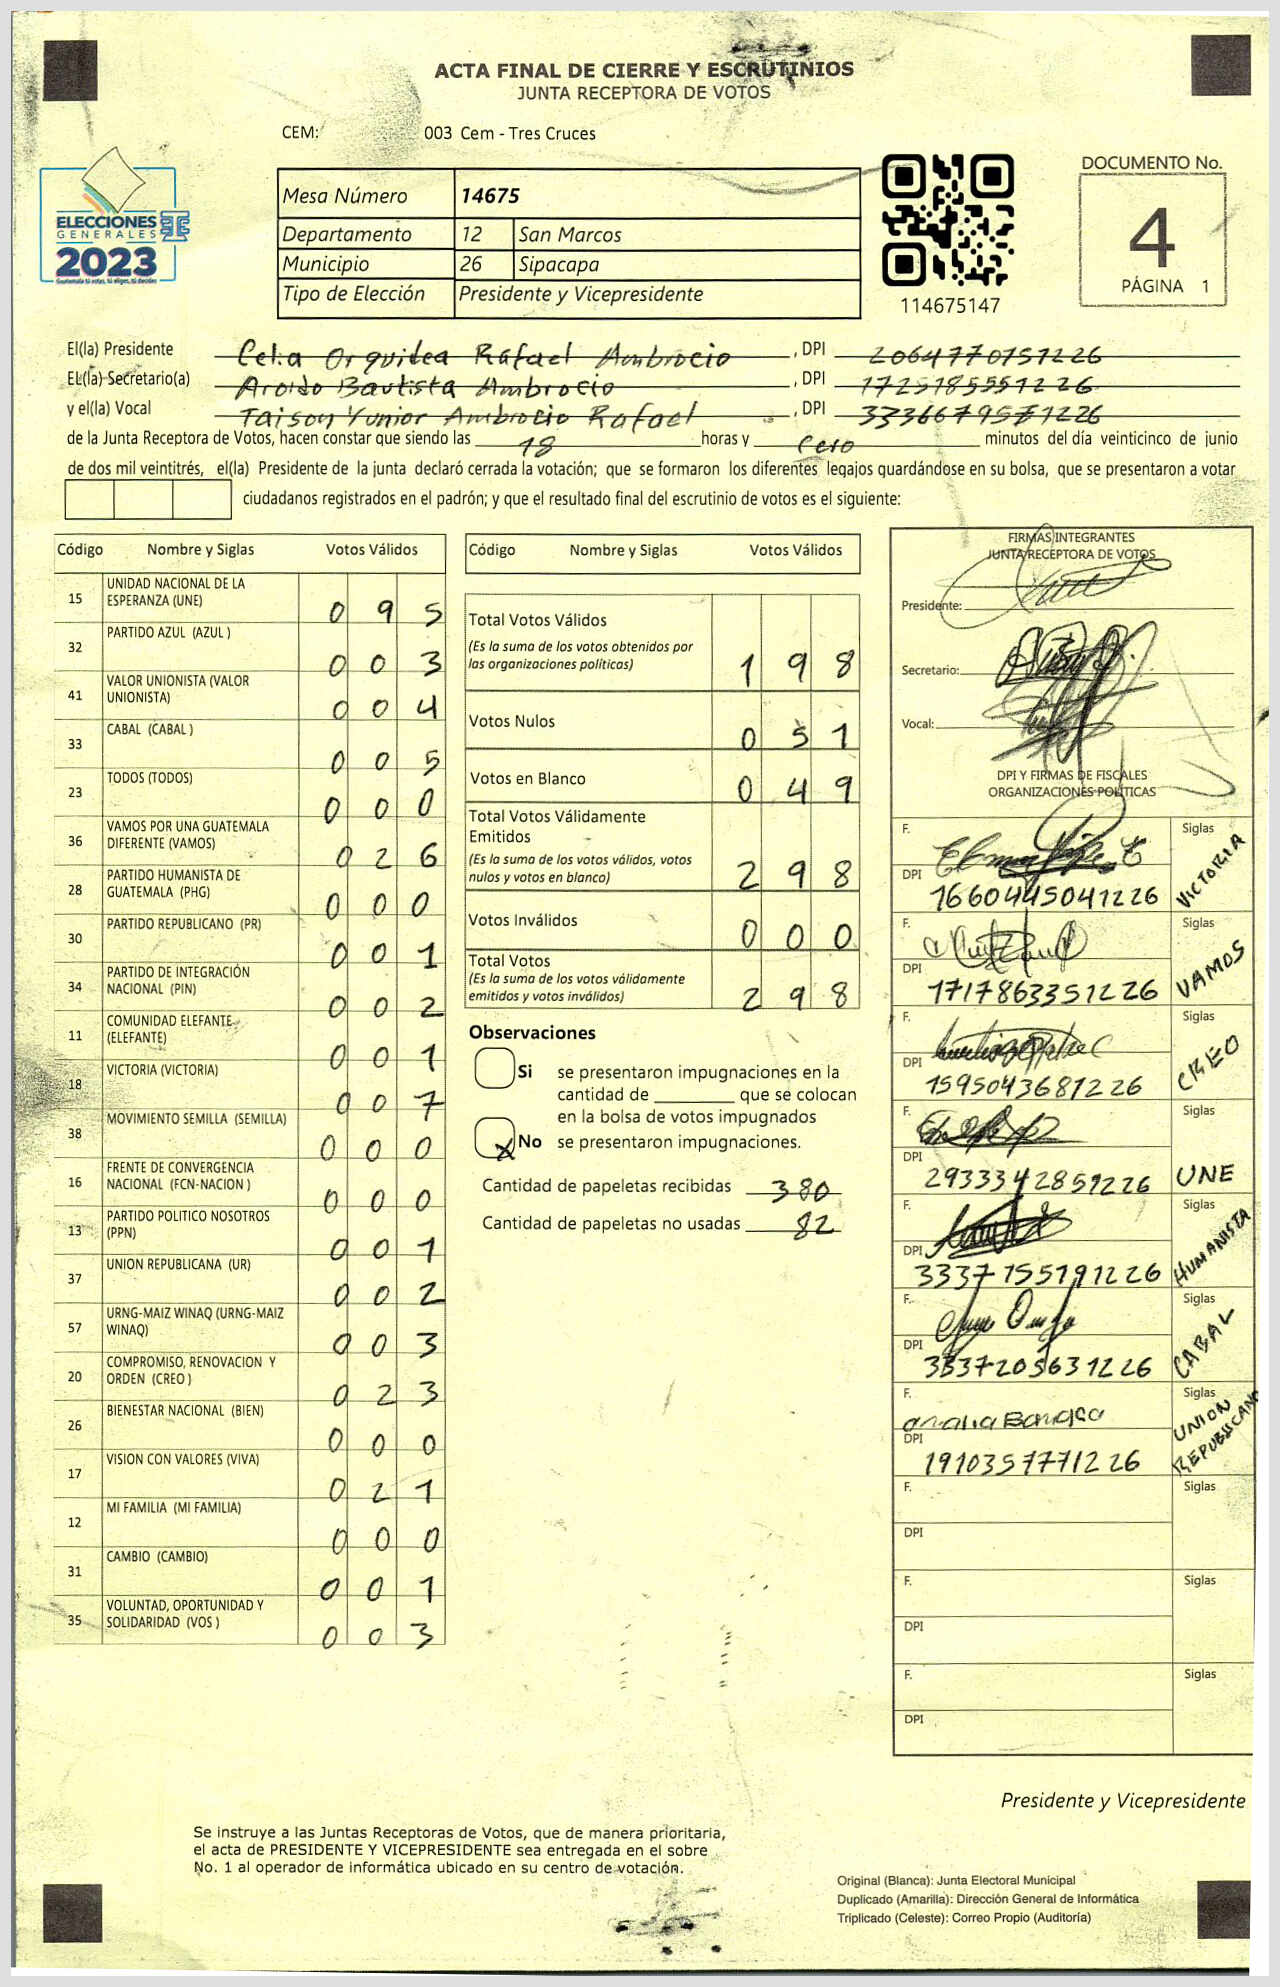 ACTA FINAL DE CIERRE Y ESCRUTINIOS
JUNTA RECEPTORA DE VOTOS
CEM: 003 Cem - Tres Cruces
ELECCIONES
GENERALES
2023
Guatemala tú votas, tú eliges, tú decides
Mesa Número 14675
Departamento 12 San Marcos
Municipio 26 Sipacapa
Tipo de Elección Presidente y Vicepresidente
114675147
DOCUMENTO No.
4
PÁGINA 1
El(la) Presidente Celia Orquidea Rafael Ambrocio , DPI 2064770751226
EL(la) Secretario(a) Aroldo Bautista Ambrocio , DPI 1725185551226
y el(la) Vocal Taison Yunior Ambrocio Rafael , DPI 3336679571226
de la Junta Receptora de Votos, hacen constar que siendo las 18 horas y Cero minutos del día veinticinco de junio
de dos mil veintitrés, el(la) Presidente de la junta declaró cerrada la votación; que se formaron los diferentes legajos quardándose en su bolsa, que se presentaron a votar
ciudadanos registrados en el padrón; y que el resultado final del escrutinio de votos es el siguiente:
Código Nombre y Siglas Votos Válidos
15 UNIDAD NACIONAL DE LA ESPERANZA (UNE) 0 9 5
32 PARTIDO AZUL (AZUL ) 0 0 3
41 VALOR UNIONISTA (VALOR UNIONISTA) 0 0 4
33 CABAL (CABAL ) 0 0 5
23 TODOS (TODOS) 0 0 0
36 VAMOS POR UNA GUATEMALA DIFERENTE (VAMOS) 0 2 6
28 PARTIDO HUMANISTA DE GUATEMALA (PHG) 0 0 0
30 PARTIDO REPUBLICANO (PR) 0 0 1
34 PARTIDO DE INTEGRACIÓN NACIONAL (PIN) 0 0 2
11 COMUNIDAD ELEFANTE (ELEFANTE) 0 0 1
18 VICTORIA (VICTORIA) 0 0 7
38 MOVIMIENTO SEMILLA (SEMILLA) 0 0 0
16 FRENTE DE CONVERGENCIA NACIONAL (FCN-NACION ) 0 0 0
13 PARTIDO POLITICO NOSOTROS (PPN) 0 0 1
37 UNION REPUBLICANA (UR) 0 0 2
57 URNG-MAIZ WINAQ (URNG-MAIZ WINAQ) 0 0 3
20 COMPROMISO, RENOVACION Y ORDEN (CREO ) 0 2 3
26 BIENESTAR NACIONAL (BIEN) 0 0 0
17 VISION CON VALORES (VIVA) 0 2 1
12 MI FAMILIA (MI FAMILIA) 0 0 0
31 CAMBIO (CAMBIO) 0 0 1
35 VOLUNTAD, OPORTUNIDAD Y SOLIDARIDAD (VOS ) 0 0 3
Código Nombre y Siglas Votos Válidos
Total Votos Válidos
(Es la suma de los votos obtenidos por
las organizaciones políticas) 1 9 8
Votos Nulos 0 5 1
Votos en Blanco 0 4 9
Total Votos Válidamente
Emitidos
(Es la suma de los votos válidos, votos
nulos y votos en blanco) 2 9 8
Votos Inválidos 0 0 0
Total Votos
(Es la suma de los votos válidamente
emitidos y votos inválidos) 2 9 8
Observaciones
Si se presentaron impugnaciones en la
cantidad de que se colocan
en la bolsa de votos impugnados
X No se presentaron impugnaciones.
Cantidad de papeletas recibidas 380
Cantidad de papeletas no usadas 82
FIRMAS INTEGRANTES
JUNTA RECEPTORA DE VOTOS
Presidente:
Secretario:
Vocal:
DPI Y FIRMAS DE FISCALES
ORGANIZACIONES POLÍTICAS
F. Siglas
DPI 1660445041226 VICTORIA
F. Siglas
DPI 1717863351226 VAMOS
F. Siglas
DPI 1595043681226 CREO
F. Siglas
DPI 2933342851226 UNE
F. Siglas
DPI 3337155191226 HUMANISTA
F. Siglas
DPI 3337205631226 CABAL
F. Siglas
DPI 1910357771226 UNION REPUBLICANA
F. Siglas
DPI
F. Siglas
DPI
F. Siglas
DPI
Presidente y Vicepresidente
Se instruye a las Juntas Receptoras de Votos, que de manera prioritaria,
el acta de PRESIDENTE Y VICEPRESIDENTE sea entregada en el sobre
No. 1 al operador de informática ubicado en su centro de votación.
Original (Blanca): Junta Electoral Municipal
Duplicado (Amarilla): Dirección General de Informática
Triplicado (Celeste): Correo Propio (Auditoría)